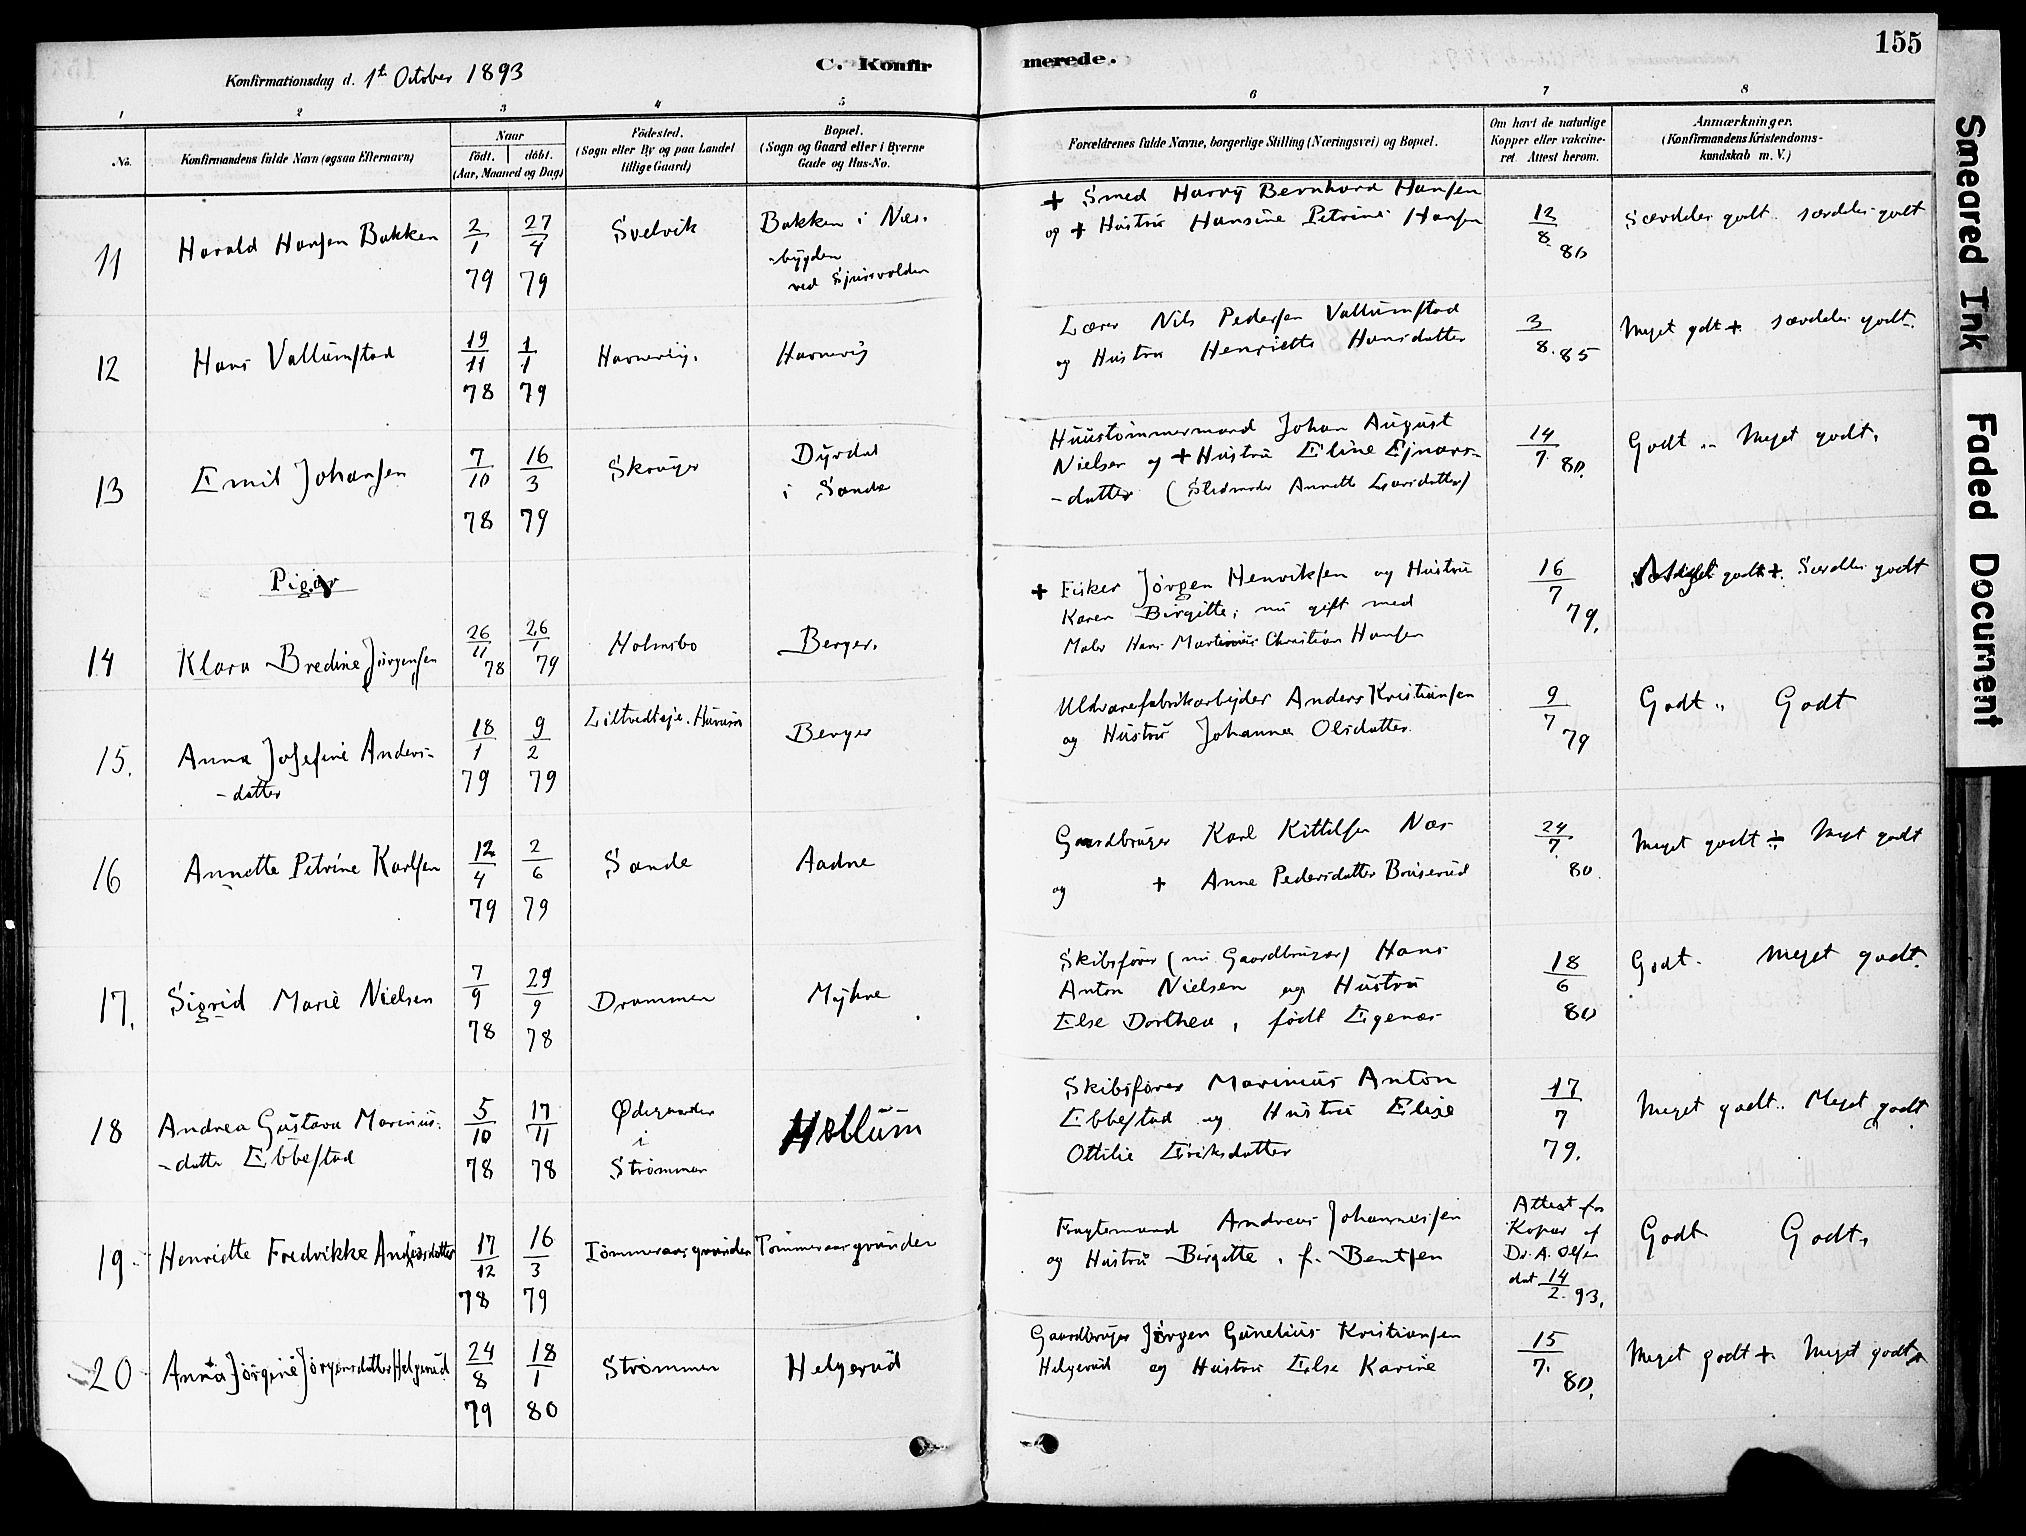 155
Konfirmationsdag d. 1st October 1893
C. Konfirmerede.
1 2 3 4 5 6 7 8
No.
Konfirmandens fulde Navn (ogsaa Efternavn)
Naar
födt. döbt.
(Aar, Maaned og Dag)
Födested.
(Sogn eller By og paa Landet
tillige Gaard)
Bopæl.
(Sogn og Gaard eller i Byerne
Gade og Hus-No.
Forældrenes fulde Navne, borgerlige Stilling (Næringsvei) og Bopæl.
Om havt de naturlige
Kopper eller vakcine-
ret. Attest herom.
Anmærkninger.
(Konfirmandens Kristendoms-
kundskab m. V.)
11
Harald Hansen Bakken
2/1 79
27/4 79
Svelvik
Bakken i Næs-
-bygden
ved
+ Smed Harry Bernhard Hansen
og + Hustru Hansine Petrine Hansen
12/8 80
Særdeles godt. særdeles godt
12
Hans Vallumstad
19/11 78
1/1 79
Lærer Nils Pedersen Vallumstad
og Hustru Henriette Hansdatter
3/8 85
Meget godt +. særdeles godt.
13
Emil Johansen
7/10 78
16/3 79
Skouger
Dyrdal
i Sande
Huustømmermand Johan August
Nielsen og + Hustru Eline Ejnars-
-datter (Stedmoder Annette Larsdatter)
14/7 80.
Godt .. Meget godt.
Piger
14
Klara Bredine Jörgensen
26/11 78
26/1 79
Holmsbo
Berger.
+ Fisker Jörgen Henriksen og Hustru
Karen Birgitte; nu gift med
Maler Hans Martinius Christian Hansen
16/7 79.
godt +. Særdeles godt
15.
Anna Josefine Anders-
-datter
18/1 79
9/2 79
Hurum
Berger
Uldvarefabrikarbejder Anders Kristiansen
og Hustru Johanne Olsdatter.
9/7 79
Godt .. Godt
16
Annette Petrine Karlsen
12/4 79
2/6 79
Sande
Aadne
Gaardbruger Karl Kittilsen Næs
og + Anne Pedersdatter Bruserud
24/7 80.
Meget godt ÷ Meget godt
17.
Sigrid Marie Nielsen
7/9 78
29/9 78
Drammen
Myhre
Skibsfører (nu Gaardbruger) Hans
Anton Nielsen og Hustru
Else Dorthea, født Egenæs
18/6 80
Godt. Meget godt.
18
Andrea Gustava Marinius-
-datter Ebbestad
5/10 78
17/11 78
Ødegaarden
i
Strømmen
Hellum
Skibsfører Marinius Anton
Ebbestad og Hustru Elise
Ottilie Eriksdatter
17/7 79.
Meget godt.. Meget godt.
19
Henriette Fredrikke Andreasdatter
17/12 78
16/3 79
Tömmeraasgrunden
Tömmeraasgrunden
Fragtemand Andreas Johannessen
og Hustru Birgitte, f. Bentsen
Attest for
Kopar af
Dr. A. Olsen
dat 14/2 93.
Godt Godt.
20
Anna Jörgine Jörgensdatter Helgerud
24/8 79
18/1 80
Strømmen
Helgerud
Gaardbruger Jörgen Gunelius Kristiansen
Helgerud og Hustru Else Karine
15/7. 80.
Meget godt +. Meget godt
Smeared Ink
Faded Document